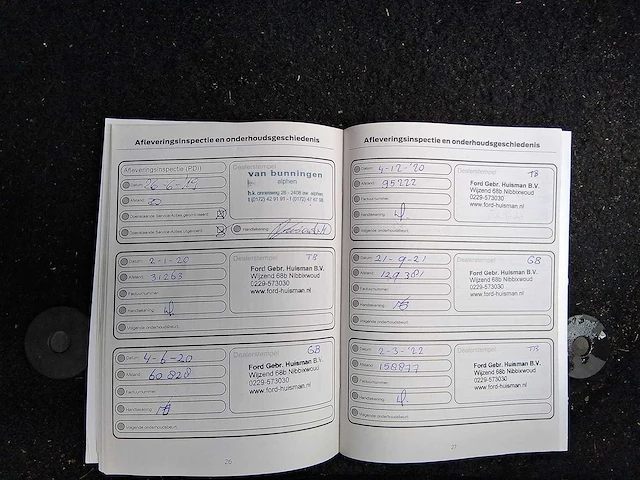 Afleveringsinspectie en onderhoudsgeschiedenis
Afleveringsinspectie (PDI)
Datum 26-6-'19
Afstand 20
Handtekening
Dealerstempel
van bunningen
alphen
Datum 2-1-20
Afstand 31263
Factuurnummer
Handtekening
Volgende onderhoudsbeurt
Dealerstempel TB
Ford Gebr. Huisman B.V.
Wijzend 68b Nibbixwoud
0229-573030
www.ford-huisman.nl
Datum 4-6-20
Afstand 60828
Factuurnummer
Handtekening
Volgende onderhoudsbeurt
Dealerstempel GB
Ford Gebr. Huisman B.V.
Wijzend 68b Nibbixwoud
0229-573030
www.ford-huisman.nl
26
Afleveringsinspectie en onderhoudsgeschiedenis
Datum 4-12-'20
Afstand 95222
Factuurnummer
Handtekening
Volgende onderhoudsbeurt
Dealerstempel TB
Ford Gebr. Huisman B.V.
Wijzend 68b Nibbixwoud
0229-573030
www.ford-huisman.nl
Datum 21-9-21
Afstand 129381
Factuurnummer
Handtekening
Volgende onderhoudsbeurt
Dealerstempel GB
Ford Gebr. Huisman B.V.
Wijzend 68b Nibbixwoud
0229-573030
www.ford-huisman.nl
Datum 2-3-'22
Afstand 158877
Factuurnummer
Handtekening
Volgende onderhoudsbeurt
Dealerstempel TB
Ford Gebr. Huisman B.V.
Wijzend 68b Nibbixwoud
0229-573030
www.ford-huisman.nl
27